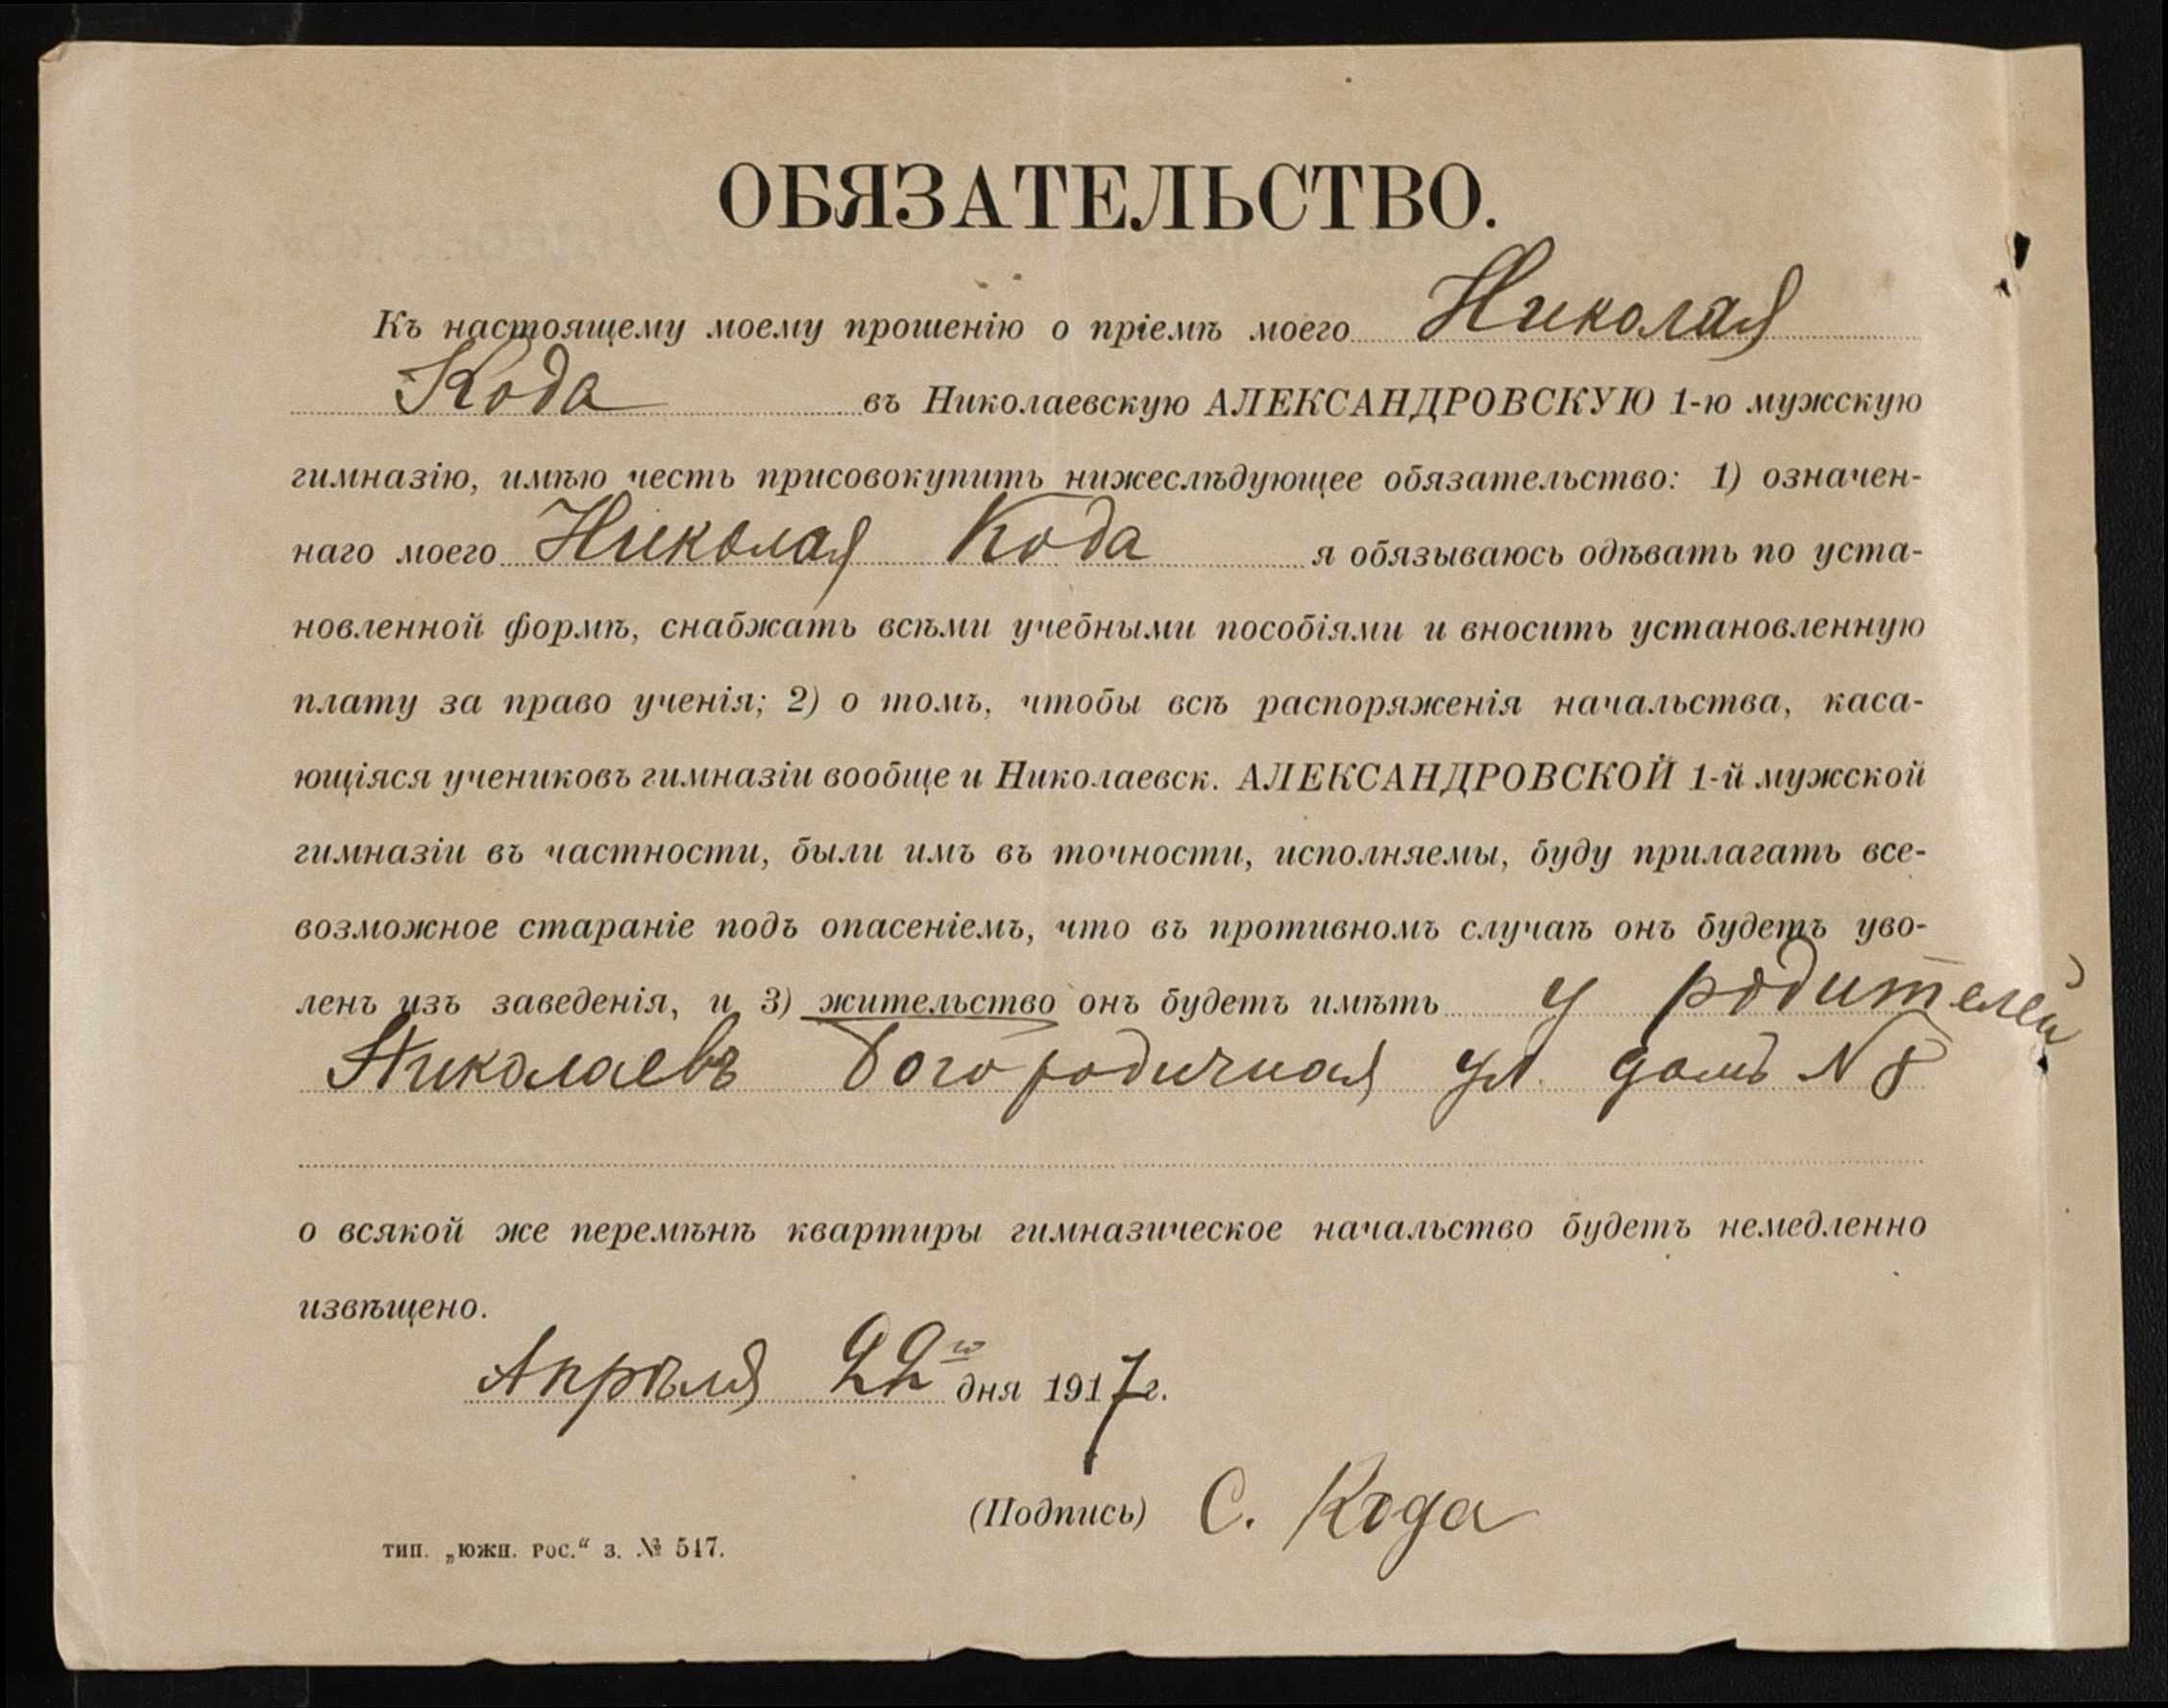 ОБЯЗАТЕЛЬСТВО.
Къ настоящему моему прошенію о пріемѣ моего Николая
Кода въ Николаевскую АЛЕКСАНДРОВСКУЮ 1-ю мужскую
гимназію, имѣю честь присовокупить нижеслѣдующее обязательство: 1) означен-
наго моего Николая Кода я обязываюсь одѣвать по уста-
новленной формѣ, снабжать всѣми учебными пособіями и вносить установленную
плату за право ученія; 2) о томъ, чтобы всѣ распоряженія начальства, каса-
ющіяся учениковъ гимназіи вообще и Николаевск. АЛЕКСАНДРОВСКОЙ 1-й мужской
гимназіи въ частности, были имъ въ точности, исполняемы, буду прилагать все-
возможное стараніе подъ опасеніемъ, что въ противномъ случаѣ онъ будетъ уво-
ленъ изъ заведенія, и 3) жительство онъ будетъ имѣть у родителей
Николаевъ Богородичная ул. домъ №
о всякой же перемѣнѣ квартиры гимназическое начальство будетъ немедленно
извѣщено.
Апрѣля 22го дня 1917г.
(Подпись) С. Кода
тип. „южн. рос.“ з. № 517.